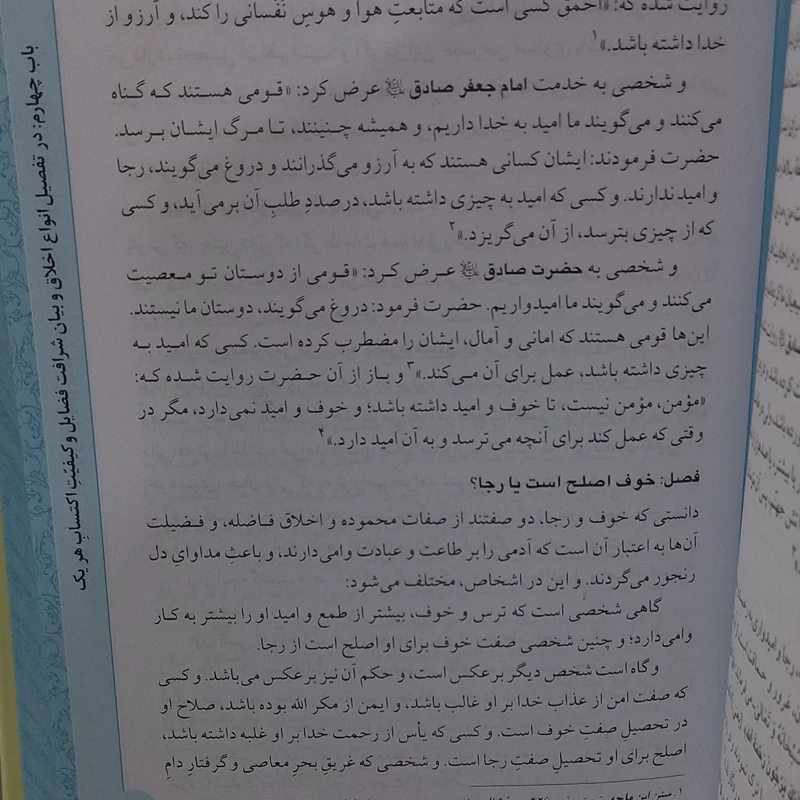 روایت شده که: «احمق کسی است که متابعتِ هوا و هوسِ نَفْسانی را کند، و آرزو از
خدا داشته باشد.»۱
و شخصی به خدمت امام جعفر صادق ﷺ عرض کرد: «قومی هستند که گناه
می‌کنند و می‌گویند ما امید به خدا داریم، و همیشه چنینند، تا مرگ ایشان برسد.
حضرت فرمودند: ایشان کسانی هستند که به آرزو می‌گذرانند و دروغ می‌گویند، رجا
و امید ندارند. و کسی که امید به چیزی داشته باشد، در صددِ طلبِ آن برمی‌آید، و کسی
که از چیزی بترسد، از آن می‌گریزد.»۲
و شخصی به حضرت صادق عرض کرد: «قومی از دوستان تو معصیت
می‌کنند و می‌گویند ما امیدواریم. حضرت فرمود: دروغ می‌گویند، دوستان ما نیستند.
این‌ها قومی هستند که امانی و آمال، ایشان را مضطرب کرده است. کسی که امید به
چیزی داشته باشد، عمل برای آن می‌کند.»۳ و باز از آن حضرت روایت شده که:
«مؤمن، مؤمن نیست، تا خوف و امید داشته باشد؛ و خوف و امید نمی‌دارد، مگر در
وقتی که عمل کند برای آنچه می‌ترسد و به آن امید دارد.»۴
فصل: خوف اصلح است یا رجا؟
دانستی که خوف و رجا، دو صفتند از صفات محموده و اخلاق فاضله، و فضیلت
آن‌ها به اعتبار آن است که آدمی را بر طاعت و عبادت وامی‌دارند، و باعثِ مداوایِ دل
رنجور می‌گردند. و این در اشخاص، مختلف می‌شود:
گاهی شخصی است که ترس و خوف، بیشتر از طمع و امید او را بیشتر به کار
وامی‌دارد؛ و چنین شخصی صفت خوف برای او اصلح است از رجا.
و گاه است شخص دیگر برعکس است، و حکم آن نیز برعکس می‌باشد. و کسی
که صفت امن از عذاب خدا بر او غالب باشد، و ایمن از مکر الله بوده باشد، صلاح او
در تحصیلِ صفتِ خوف است. و کسی که یأس از رحمت خدا بر او غلبه داشته باشد،
اصلح برای او تحصیلِ صفتِ رجا است. و شخصی که غریقِ بحرِ معاصی و گرفتارِ دامِ
۱. سنن ابن ماجه
باب چهارم: در تفصیل انواع اخلاق و بیان شرافت فضایل و کیفیّتِ اکتسابِ هر یک